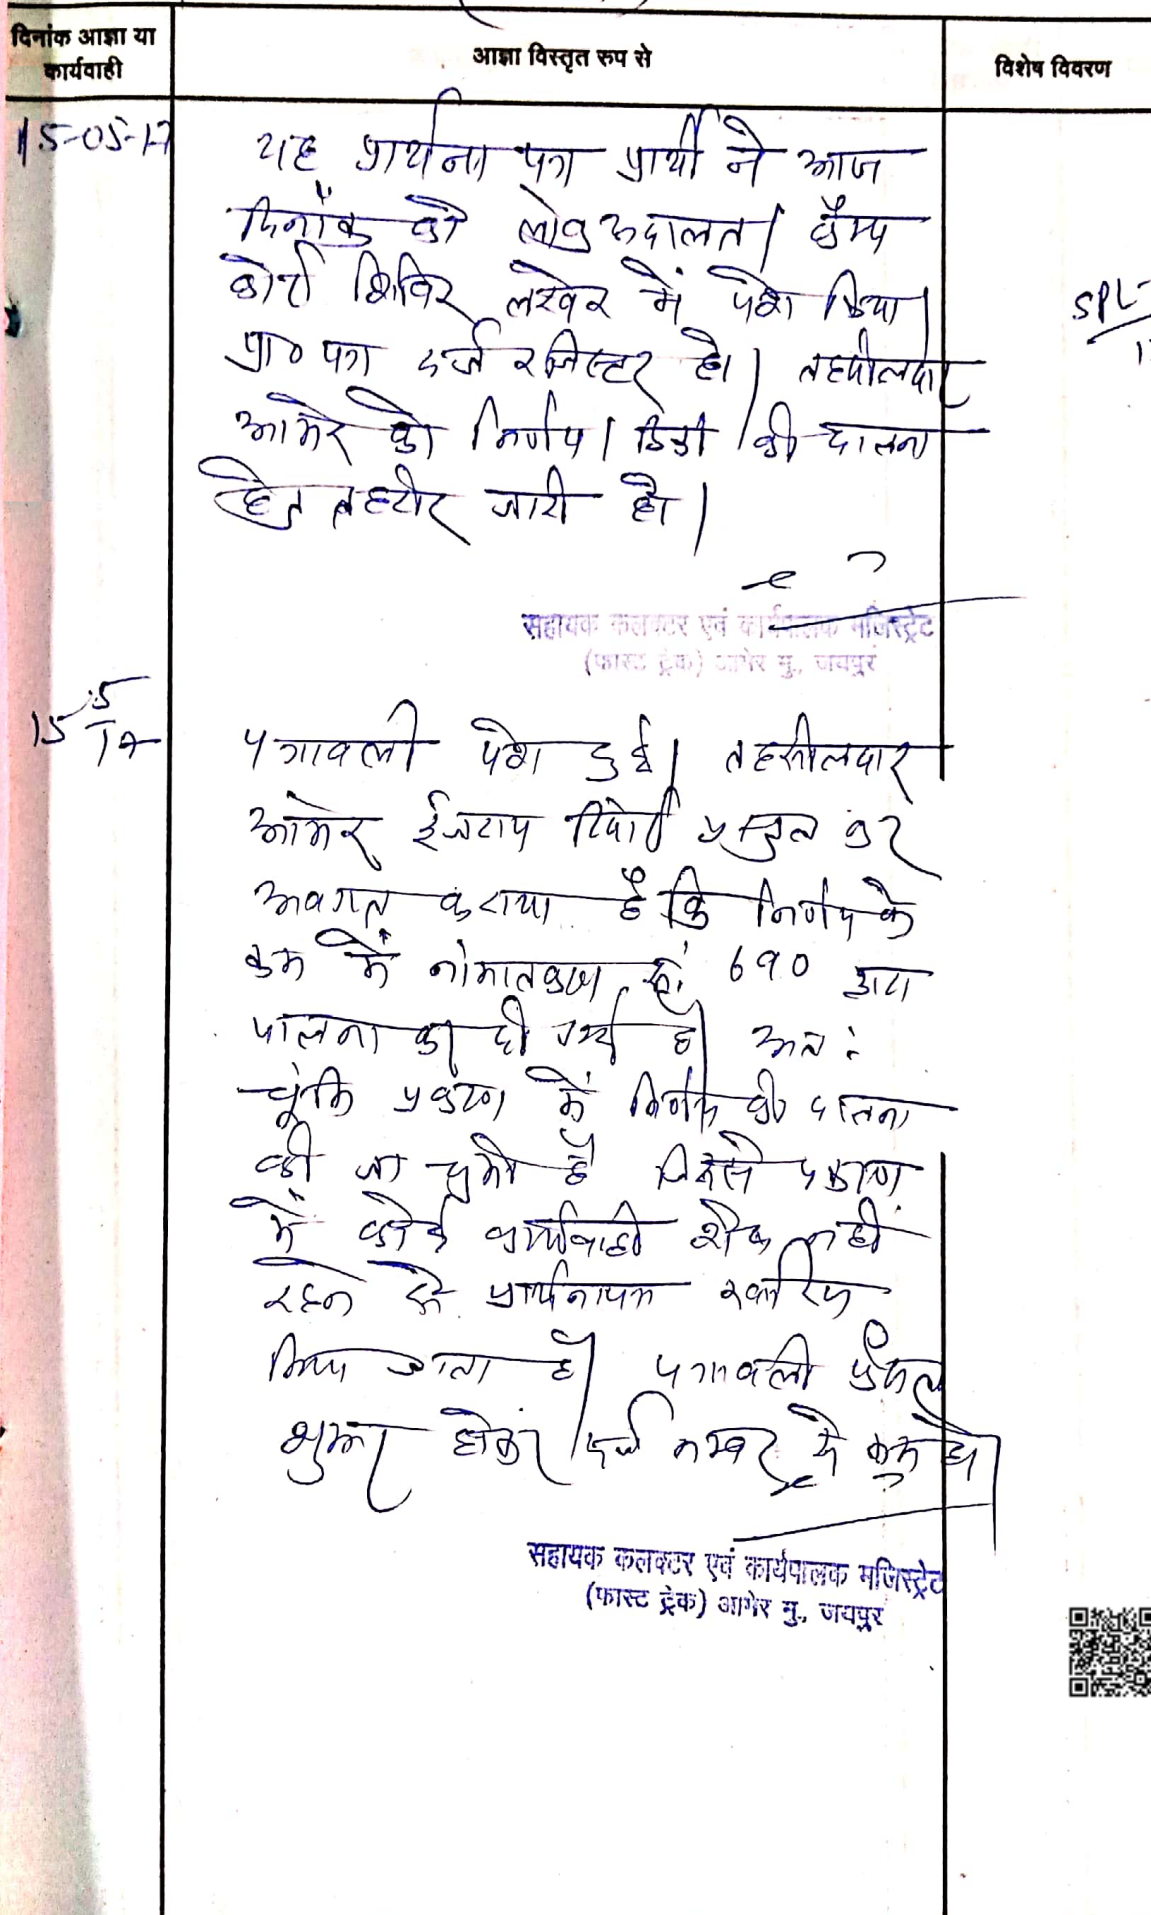 दिनांक आज्ञा या
कार्यवाही
आज्ञा विस्तृत रूप से
विशेष विवरण
15-05-17
यह प्रार्थना पत्र प्रार्थी ने आज
दिनांक को लोक अदालत / कैम्प
कोर्ट शिविर लखेर में पेश किया।
प्रा० पत्र दर्ज रजिस्टर हो। तहसीलदार
आमेर को निर्णय / डिक्री की पालना
हेतु तहरीर जारी हो।
SPL-
सहायक कलक्टर एवं कार्यपालक मजिस्ट्रेट
(फास्ट ट्रेक) आमेर मु., जयपुर
15 5/17
पत्रावली पेश हुई। तहसीलदार
आमेर रिपोर्ट प्रस्तुत कर
अवगत कराया है कि निर्णय के
क्रम में नामान्तकरण सं. 690 द्वारा
पालना कर दी गई है। अतः
चूंकि प्रकरण में निर्णय की पालना
की जा चुकी है जिससे प्रकरण
में कोई कार्यवाही शेष नहीं
रहने से प्रार्थनापत्र खारिज
किया जाता है। पत्रावली फैसल
शुमार होकर दर्ज नम्बर से कम हो।
सहायक कलक्टर एवं कार्यपालक मजिस्ट्रेट
(फास्ट ट्रेक) आमेर मु., जयपुर